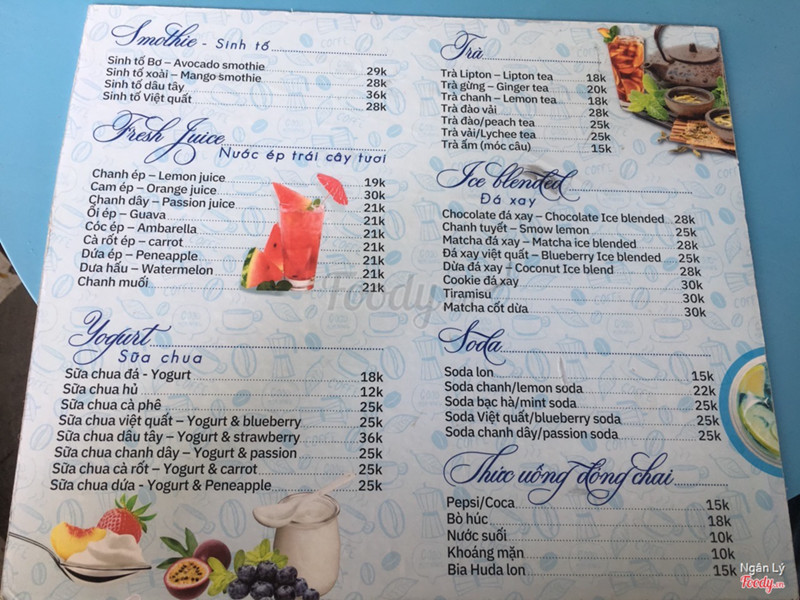 Smothie - Sinh tố
Sinh tố Bơ – Avocado smothie 29k
Sinh tố xoài – Mango smothie 28k
Sinh tố dâu tây 36k
Sinh tố Việt quất 28k
Fresh Juice
Nước ép trái cây tươi
Chanh ép – Lemon juice 19k
Cam ép - Orange juice 30k
Chanh dây – Passion juice 21k
Ổi ép – Guava 21k
Cóc ép – Ambarella 21k
Cà rốt ép – carrot 21k
Dứa ép – Peneapple 21k
Dưa hấu – Watermelon 21k
Chanh muối 21k
Yogurt
Sữa chua
Sữa chua đá - Yogurt 18k
Sữa chua hủ 12k
Sữa chua cà phê 25k
Sữa chua việt quất – Yogurt & blueberry 25k
Sữa chua dâu tây – Yogurt & strawberry 36k
Sữa chua chanh dây – Yogurt & passion 25k
Sữa chua cà rốt – Yogurt & carrot 25k
Sữa chua dứa - Yogurt & Peneapple 25k
Trà
Trà Lipton – Lipton tea 18k
Trà gừng – Ginger tea 20k
Trà chanh – Lemon tea 18k
Trà đào vải 28k
Trà đào/peach tea 25k
Trà vải/Lychee tea 25k
Trà ấm (móc câu) 15k
Ice blended
Đá xay
Chocolate đá xay – Chocolate Ice blended 28k
Chanh tuyết – Smow lemon 25k
Matcha đá xay – Matcha ice blended 28k
Đá xay việt quất – Blueberry Ice blended 25k
Dừa đá xay – Coconut Ice blend 28k
Cookie đá xay 30k
Tiramisu 30k
Matcha cốt dừa 30k
Soda
Soda lon 15k
Soda chanh/lemon soda 22k
Soda bạc hà/mint soda 25k
Soda Việt quất/blueberry soda 25k
Soda chanh dây/passion soda 25k
Thức uống đóng chai
Pepsi/Coca 15k
Bò húc 18k
Nước suối 10k
Khoáng mặn 10k
Bia Huda lon 15k
Foody
Ngân Lý
Foody.vn